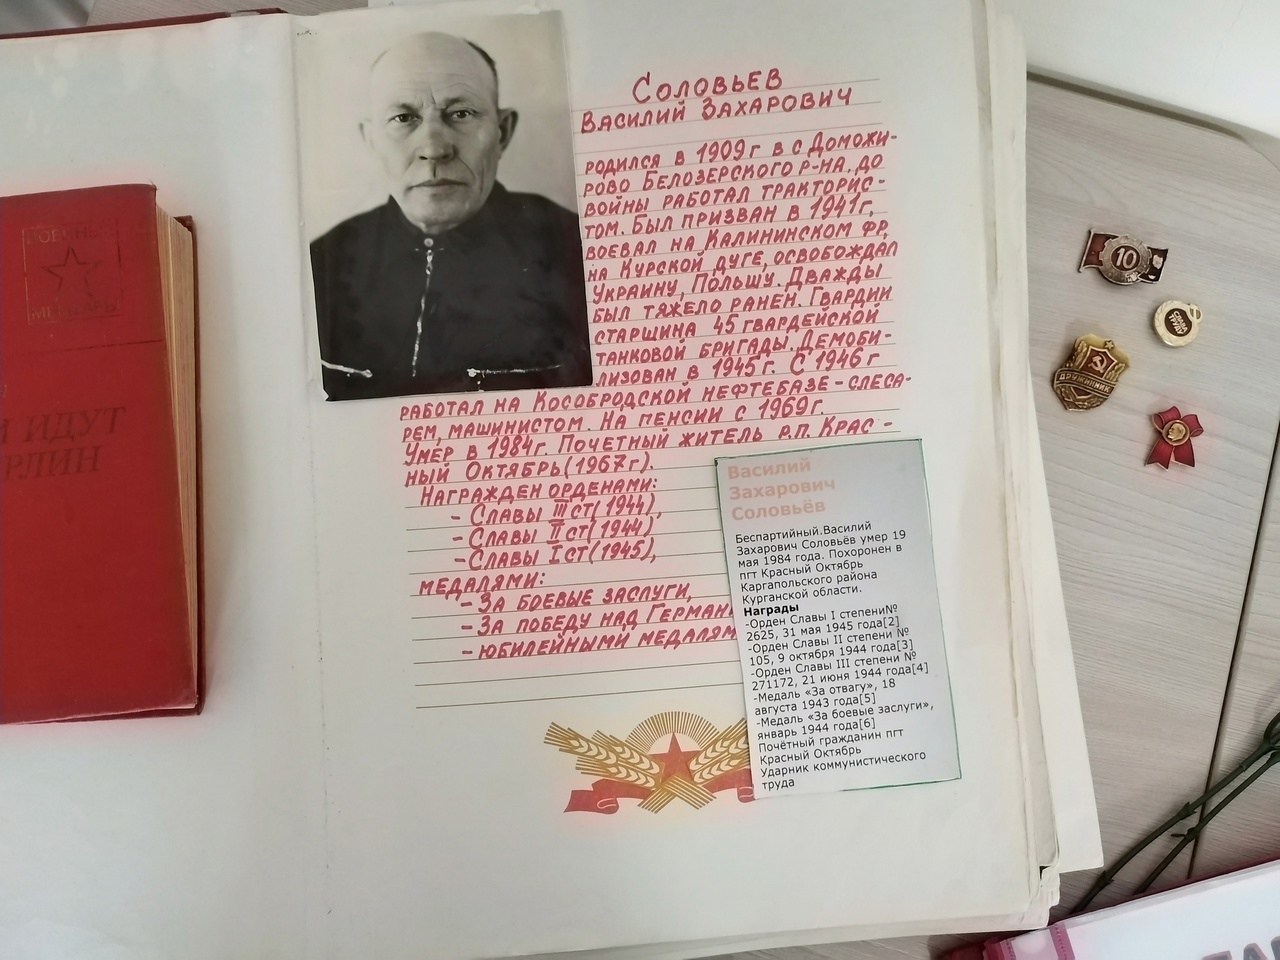 СОЛОВЬЕВ
ВАСИЛИЙ ЗАХАРОВИЧ
РОДИЛСЯ В 1909 Г В С ДОМОЖИ-
РОВО БЕЛОЗЕРСКОГО Р-НА. ДО
ВОЙНЫ РАБОТАЛ ТРАКТОРИС-
ТОМ. БЫЛ ПРИЗВАН В 1941 Г,
ВОЕВАЛ НА КАЛИНИНСКОМ ФР,
НА КУРСКОЙ ДУГЕ, ОСВОБОЖДАЛ
УКРАИНУ, ПОЛЬШУ. ДВАЖДЫ
БЫЛ ТЯЖЕЛО РАНЕН. ГВАРДИИ
СТАРШИНА 45 ГВАРДЕЙСКОЙ
ТАНКОВОЙ БРИГАДЫ. ДЕМОБИ-
ЛИЗОВАН В 1945 Г. С 1946 Г
РАБОТАЛ НА КОСОБРОДСКОЙ НЕФТЕБАЗЕ - СЛЕСА-
РЕМ, МАШИНИСТОМ. НА ПЕНСИИ С 1969 Г.
УМЕР В 1984 Г. ПОЧЕТНЫЙ ЖИТЕЛЬ Р.П. КРАС -
НЫЙ ОКТЯБРЬ (1967 Г).
НАГРАЖДЕН ОРДЕНАМИ:
- СЛАВЫ III СТ (1944),
- СЛАВЫ II СТ (1944)
- СЛАВЫ I СТ (1945),
МЕДАЛЯМИ:
- ЗА БОЕВЫЕ ЗАСЛУГИ,
- ЗА ПОБЕДУ НАД
- ЮБИЛЕЙНЫМИ
Василий
Захарович
Соловьёв
Беспартийный.Василий
Захарович Соловьёв умер 19
мая 1984 года. Похоронен в
пгт Красный Октябрь
Каргапольского района
Курганской области.
Награды
-Орден Славы I степени№
2625, 31 мая 1945 года[2]
-Орден Славы II степени №
105, 9 октября 1944 года[3]
-Орден Славы III степени №
271172, 21 июня 1944 года[4]
-Медаль «За отвагу», 18
августа 1943 года[5]
-Медаль «За боевые заслуги»,
январь 1944 года[6]
Почётный гражданин пгт
Красный Октябрь
Ударник коммунистического
труда
ИДУТ
10
СЛАВА
ТРУДУ
ДРУЖИННИК